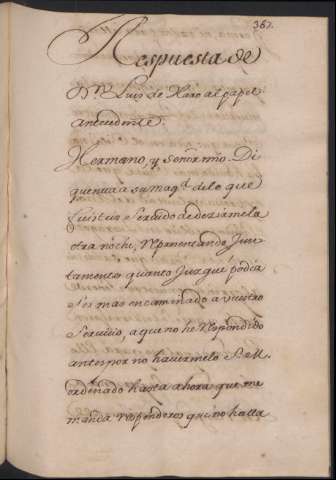 367.
Respuesta de
Dn. Luis de Haro al papel
antecedente.
Hermano, y señor mio. Di
quenta a su magd. de lo que
fuisteis servido de dezirmela
otra noche, representando Jun
tamente quanto Juzgué podia
ser mas encaminado a vuestro
servicio, a que no he respondido
antes por no havermelo S. M.
ordenado hasta ahora que me
manda responderos que no halla